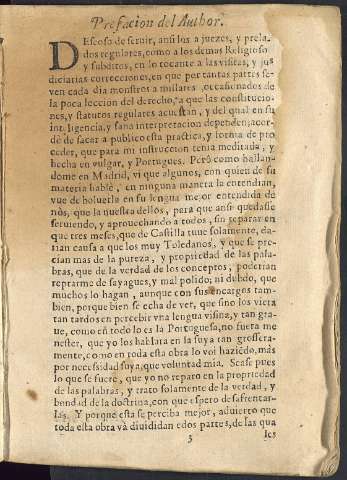 Prefacion del Author.
DEseoso de seruir, ansi los a juezes, y prela-
dos regulares, como a los demas Religiosos
y subditos, en lo tocante a las visitas, y ju-
diciarias correcciones, en que por tantas partes se-
ven cada dia monstros a millares, occasionados de
la poca leccion del derecho, a que las constitucio-
nes, y statutos regulares acuestan, y del qual en su
int ligencia, y sana interpretacion dependen; acor-
dè de sacar a publico esta practica, y forma de pro
ceder, que para mi instruccion tenia meditada, y
hecha en vulgar, y Portugues. Però como hallan-
dome en Madrid, vi que algunos, con quien de su
materia hablè, en ninguna manera la entendian,
vue de boluerla en su lengua mejor entendida de
nòs, que la nuestra dellos, para que ansi quedase
seruiendo, y aprouechando a todos, sin reparar en
que tres meses, que de Castilla tuue solamente, da-
rian causa a que los muy Toledanos, y que se pre-
cian mas de la pureza, y propriedad de las pala-
bras, que de la verdad de los conceptos, poderian
reprarme de sayagues, y mal polido; ni dubdo, que
muchos lo hagan, aunque con sus encargos tam-
bien, porque bien se echa de ver, que sino los viera
tan tardos en percebir vna lengua visina, y tan gra-
ue, como en todo lo es la Portuguesa, no fuera me
nester, que yo los hablara en la suya tan grossera-
mente, como en toda esta obra lo voi haziẽdo, màs
por necessidad suya, que voluntad mia. Sease pues
lo que se fuere, que yo no reparo en la propriedad
de las palabras, y trato solamente de la verdad, y
bondad de la doctrina, con que espero desafrentar-
las. Y porque esta se perciba mejor, aduierto que
toda esta obra và diuidida en dos partes, de las qua
3 les